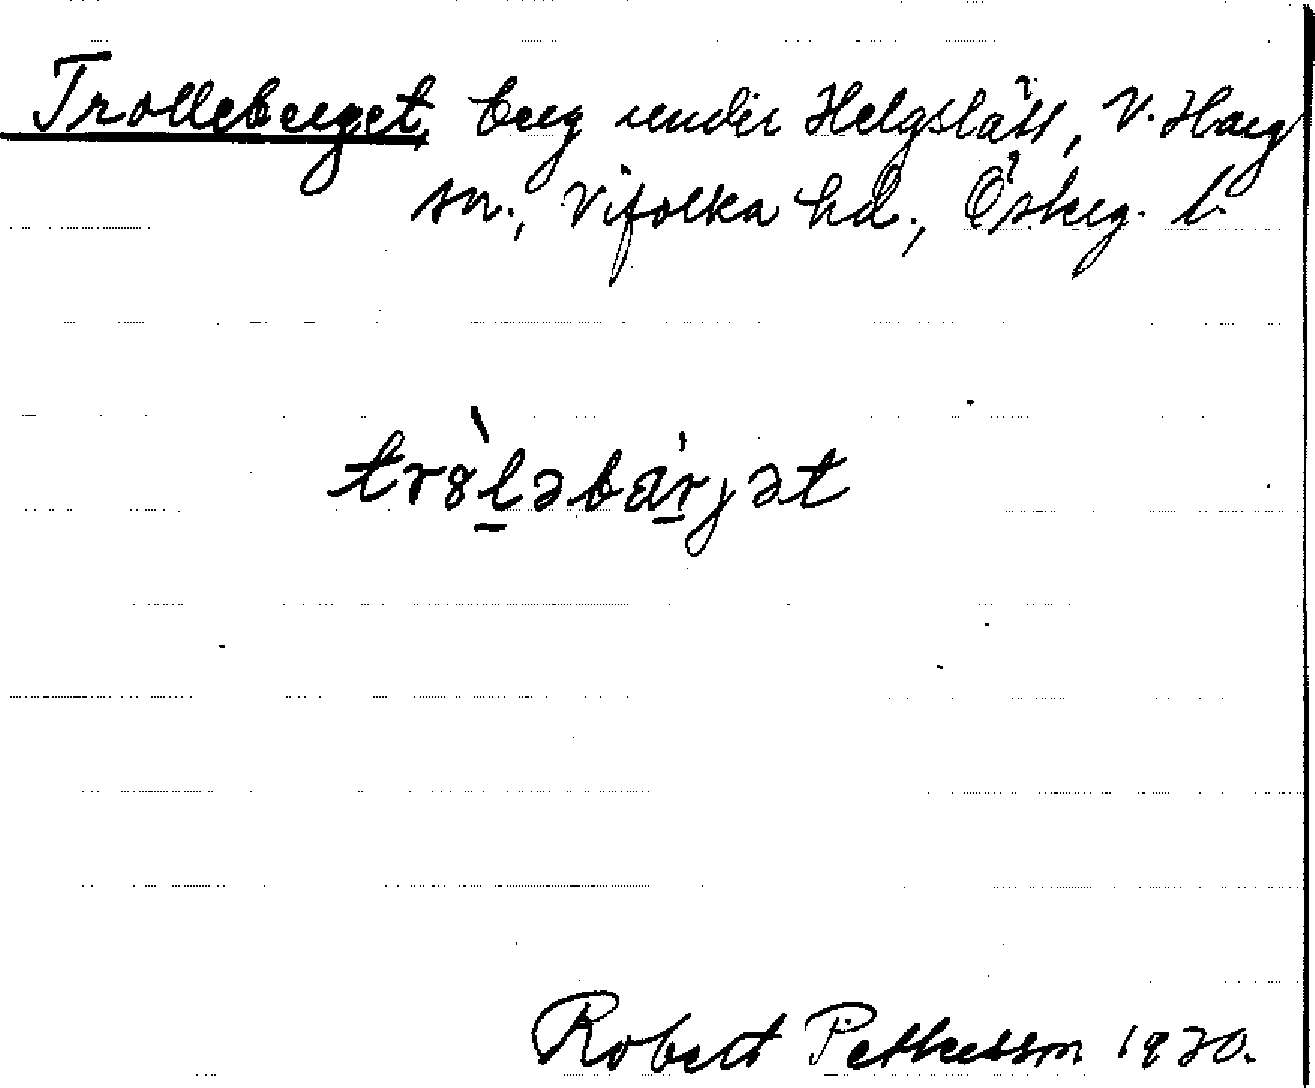 Trolleberget, berg under Helgslätt, V. Harg
sn., Vifolka hd., Österg. l.
trɵ̀lǝbárjǝt
Robert Pettersson 1930.